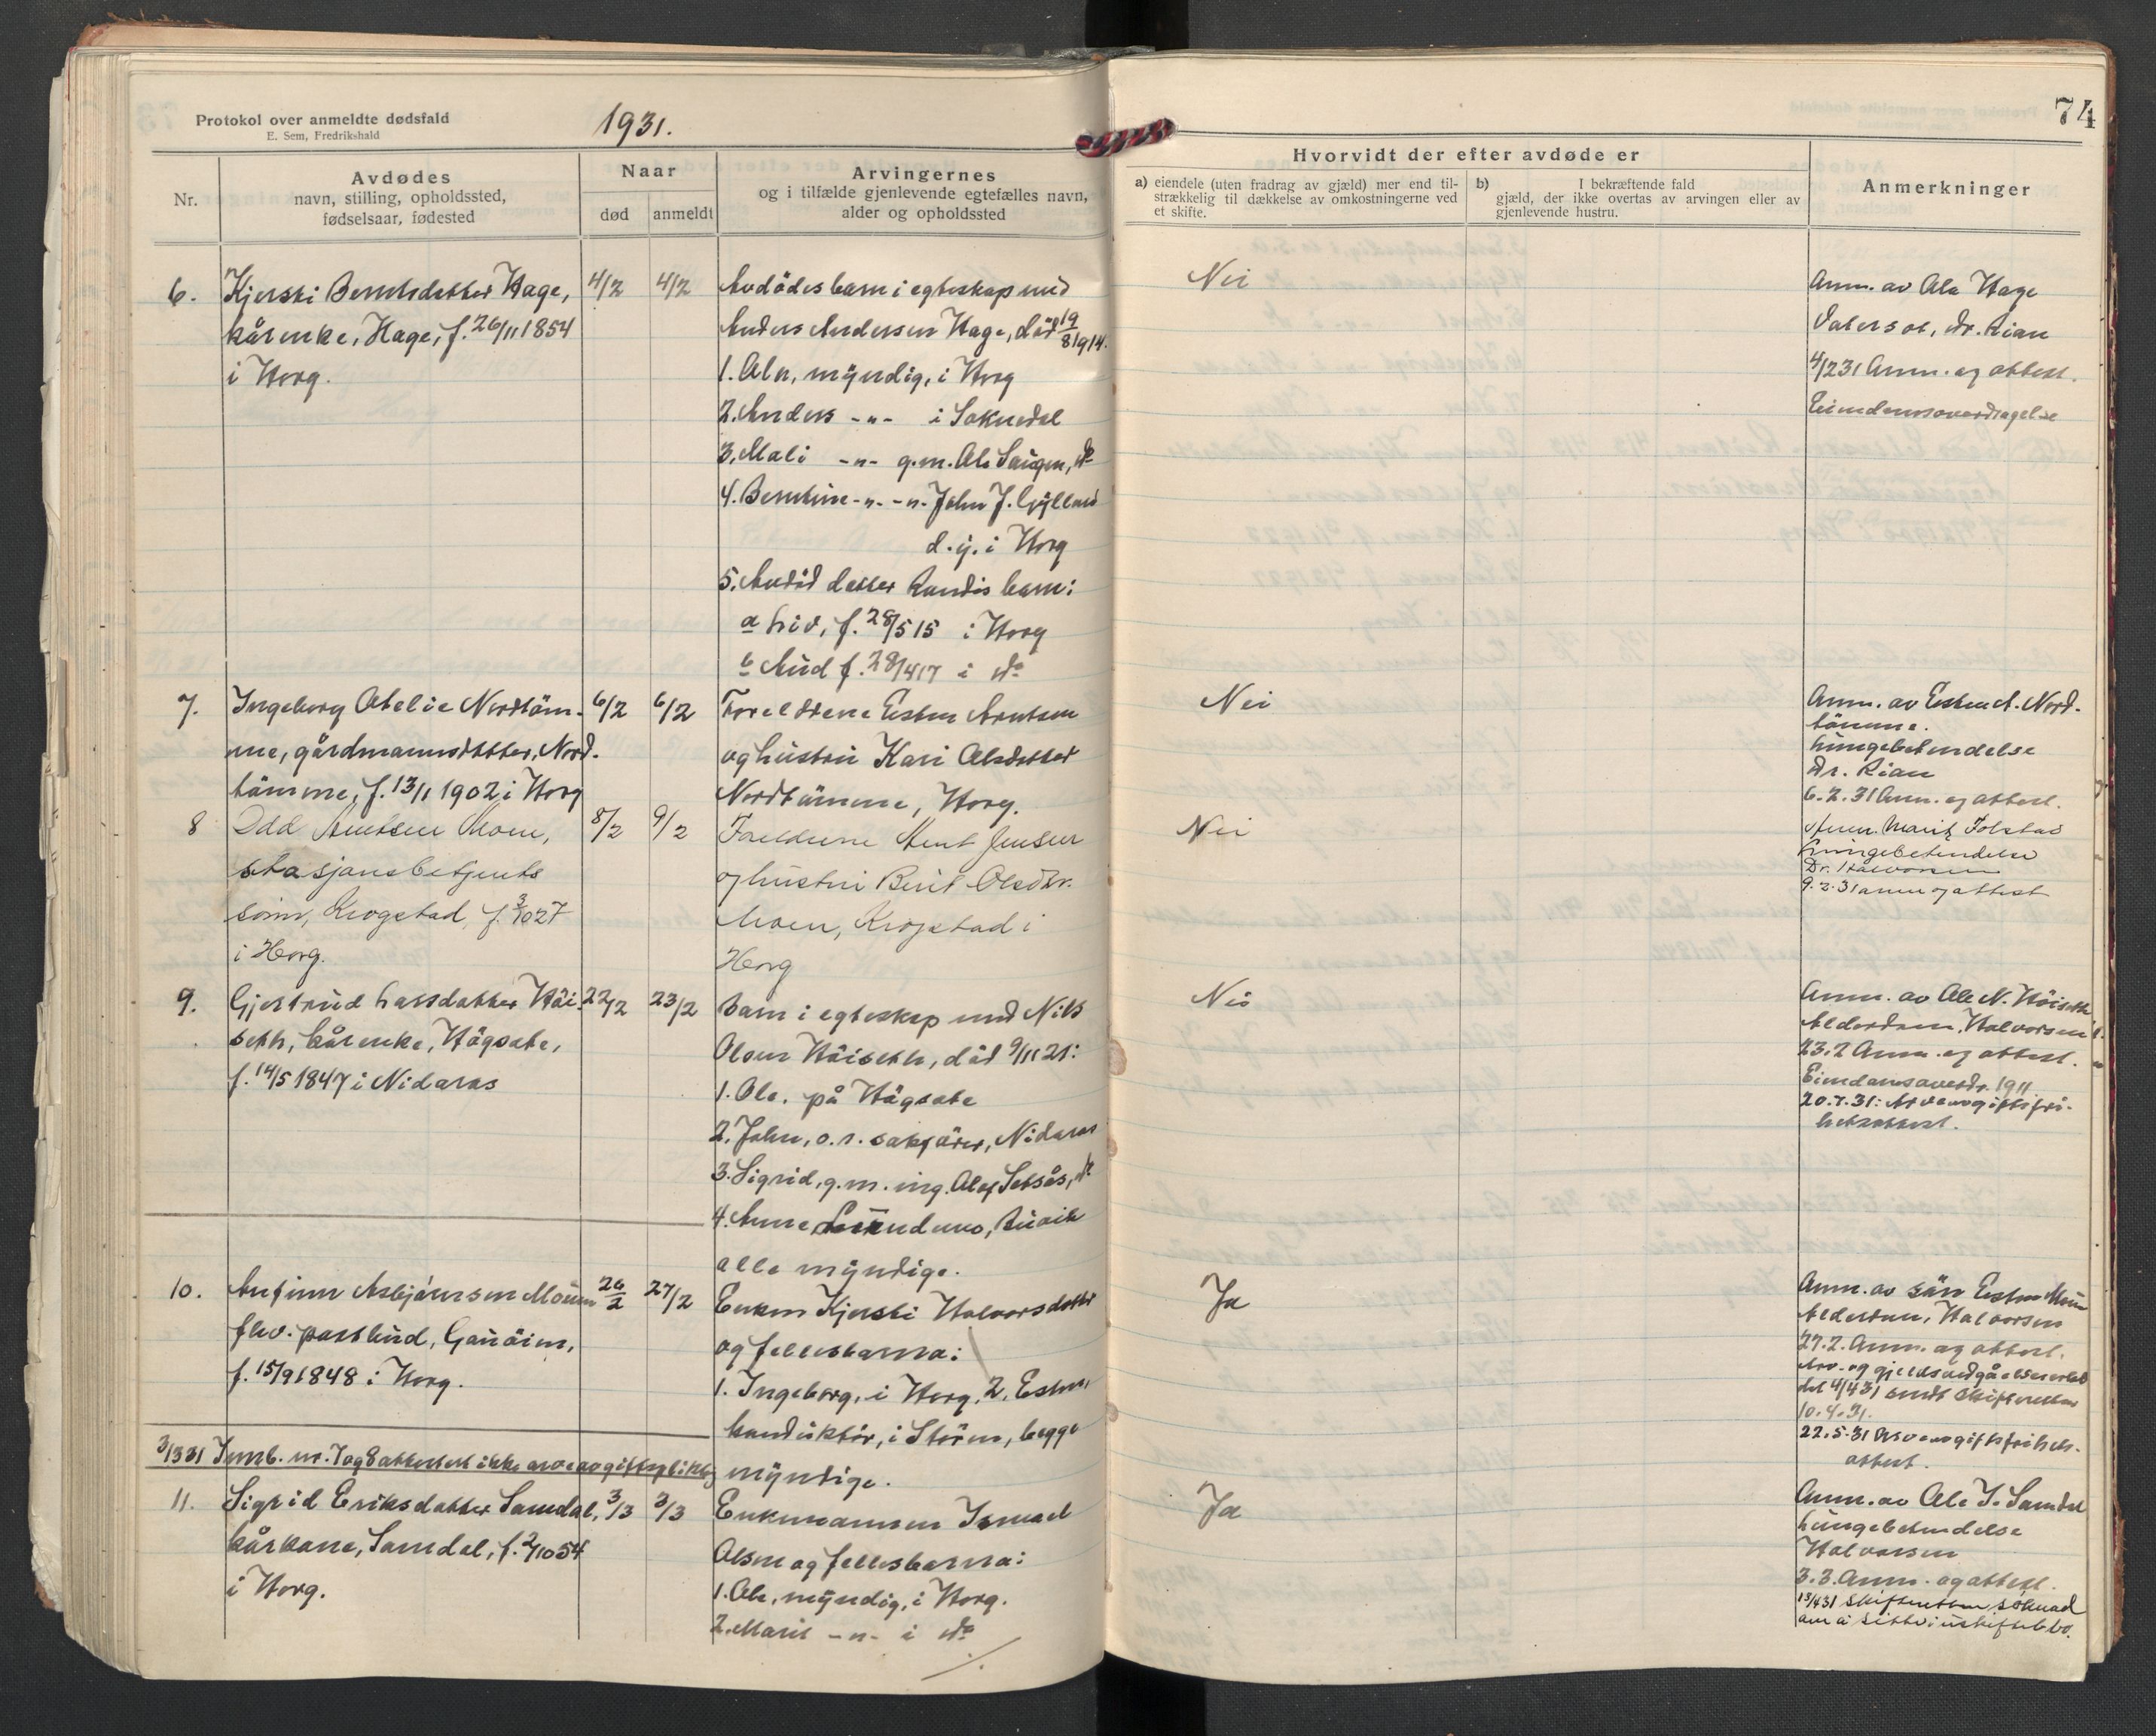 Protokol over anmeldte dødsfald
E. Sem, Fredrikshald
1931.
Nr.
Avdødes
navn, stilling, opholdssted,
fødselsaar, fødested
Naar
død
anmeldt
Arvingernes
og i tilfælde gjenlevende egtefælles navn,
alder og opholdssted
74
Hvorvidt der efter avdøde er
a) eiendele (uten fradrag av gjæld) mer end til-
strækkelig til dækkelse av omkostningerne ved
et skifte.
b) I bekræftende fald
gjæld, der ikke overtas av arvingen eller av
gjenlevende hustru.
Anmerkninger
6.
Kjersti Berntsdatter Hage,
kårenke, Hage, f. 26/11 1854
i Horg.
4/2
4/2
Avdödes barn i egteskap med
Anders Andersen Hage, död 19/8 1914.
1. Ole, myndig, i Horg
2. Anders -"- i Soknedal
3. Mali -"- g.m. Ole Saugen, do
4. Berntine -"- -"- John J. Gylland
d.y. i Horg
5. Avdöd datter Randis barn:
a Liv, f. 28/5 15 i Horg
b Aud f. 28/4 17 i do
Nei
Anm. av Ola Hage
dr. Rian
4/2 31 Anm. og attest.
Eiendomsoverdragelse
7.
Ingeborg Otelie Nordtöm-
me, gårdmannsdatter, Nord-
tömme, f. 13/1 1902 i Horg
6/2
6/2
Foreldrene Esten Arntsen
og hustru Kari Olsdatter
Nordtömme, Horg.
Nei
Anm. av Esten A. Nord-
tömme.
Lungebetendelse
Dr. Rian
6.2.31 Anm. og attest.
8
Odd Arntsen Moen,
stasjonsbetjents
sönn, Krogstad, f. 3/10 27
i Horg.
8/2
9/2
Foreldrene Arnt Jensen
og hustru Berit Olsdtr.
Moen, Krogstad i
Horg
Nei
Anm. Marit Tolstad
Lungebetendelse
Dr. Halvorsen
9.2.31 anm og attest
9.
Gjertrud Larsdatter Höi-
seth, kårenke, Hågsate,
f. 14/5 1847 i Nidaros
22/2
23/2
Barn i egteskap med Nils
Olsen Höiseth, död 9/11 21:
1. Ole, på Hågsate
2. John, o.r. sakförer, Nidaros
3. Sigrid, g.m. ing. Olaf Setsås, do
4. Anne
alle myndige.
Nei
Anm. av Ole N. Höiseth
Alderdom, Halvorsen
23.2 Anm. og attest.
Eiendomsoverdr. 1911
20.7.31: Arveavgiftsfri-
hetsattest.
10.
Anfinn Asbjörnsen Moum
fhv. postbud, Gauöien,
f. 15/9 1848 i Horg.
26/2
27/2
Enken Kjersti Halvorsdatter
og fellesbarna:
1. Ingeborg, i Horg, 2. Esten,
konduktör, i Stören, begge
myndige.
Ja
Anm. av sön Esten Moum
Alderdom, Halvorsen
27.2. Anm. og attest.
Arv- og gjeldsvedgåelseserklæ
dat 4/4 31 sendt Skifteretten
10.4.31.
22.5.31 Arveavgiftsfrihets-
attest.
3/3 31 Innb. nr. 7 og 8 attestert ikke arveavgiftspliktig
11.
Sigrid Eriksdatter Samdal,
kårkone, Samdal, f. 2/10 54
i Horg.
3/3
3/3
Enkemannen Ismael
Olsen og fellesbarna:
1. Ole, myndig, i Horg.
2. Marit -"- i do
Ja
Anm. av Ole I. Samdal
Lungebetendelse
Halvorsen
3.3. Anm. og attest.
13/4 31 Skifteretten, söknad
om å sitte i uskiftet bo.